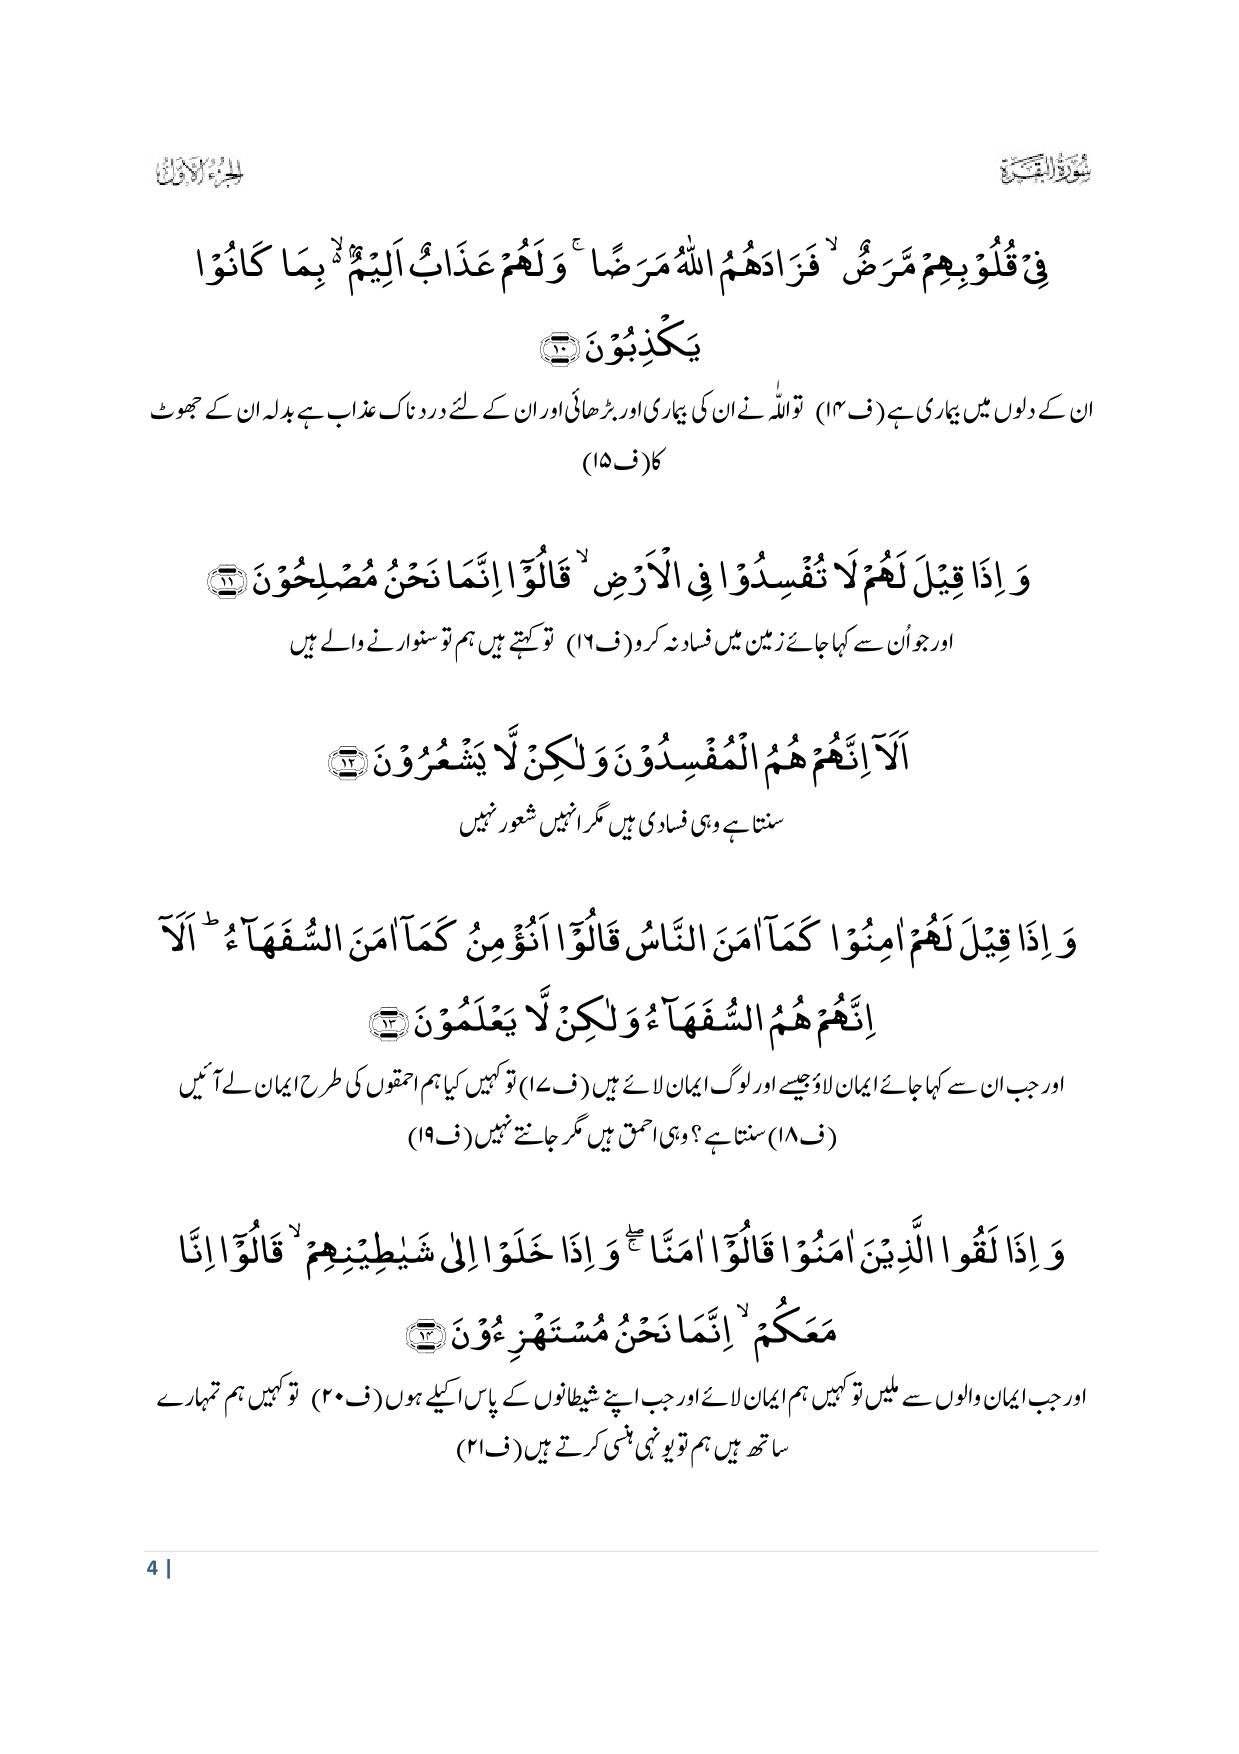 سُوْرَةُ الْبَقَرَة
الجُزءُ الاَوّلُ
فِیْ قُلُوْبِهِمْ مَّرَضٌ ۙ فَزَادَهُمُ اللّٰهُ مَرَضًا ۚ وَ لَهُمْ عَذَابٌ اَلِیْمٌۢ ۙ۬ بِمَا كَانُوْا
یَكْذِبُوْنَ ﴿۱۰﴾
ان کے دلوں میں بیماری ہے (ف۱۴) تو اللّٰہ نے ان کی بیماری اور بڑھائی اور ان کے لئے دردناک عذاب ہے بدلہ ان کے جھوٹ
کا (ف۱۵)
وَ اِذَا قِیْلَ لَهُمْ لَا تُفْسِدُوْا فِی الْاَرْضِ ۙ قَالُوْۤا اِنَّمَا نَحْنُ مُصْلِحُوْنَ ﴿۱۱﴾
اور جو اُن سے کہا جائے زمین میں فساد نہ کرو (ف۱۶) تو کہتے ہیں ہم تو سنوارنے والے ہیں
اَلَاۤ اِنَّهُمْ هُمُ الْمُفْسِدُوْنَ وَ لٰكِنْ لَّا یَشْعُرُوْنَ ﴿۱۲﴾
سنتا ہے وہی فسادی ہیں مگر انہیں شعور نہیں
وَ اِذَا قِیْلَ لَهُمْ اٰمِنُوْا كَمَاۤ اٰمَنَ النَّاسُ قَالُوْۤا اَنُؤْمِنُ كَمَاۤ اٰمَنَ السُّفَهَآءُ ؕ اَلَاۤ
اِنَّهُمْ هُمُ السُّفَهَآءُ وَ لٰكِنْ لَّا یَعْلَمُوْنَ ﴿۱۳﴾
اور جب ان سے کہا جائے ایمان لاؤ جیسے اور لوگ ایمان لائے ہیں (ف۱۷) تو کہیں کیا ہم احمقوں کی طرح ایمان لے آئیں
(ف۱۸) سنتا ہے؟ وہی احمق ہیں مگر جانتے نہیں (ف۱۹)
وَ اِذَا لَقُوا الَّذِیْنَ اٰمَنُوْا قَالُوْۤا اٰمَنَّا ۖۚ وَ اِذَا خَلَوْا اِلٰى شَیٰطِیْنِهِمْ ۙ قَالُوْۤا اِنَّا
مَعَكُمْ ۙ اِنَّمَا نَحْنُ مُسْتَهْزِءُوْنَ ﴿۱۴﴾
اور جب ایمان والوں سے ملیں تو کہیں ہم ایمان لائے اور جب اپنے شیطانوں کے پاس اکیلے ہوں (ف۲۰) تو کہیں ہم تمہارے
ساتھ ہیں ہم تو یونہی ہنسی کرتے ہیں (ف۲۱)
4 |